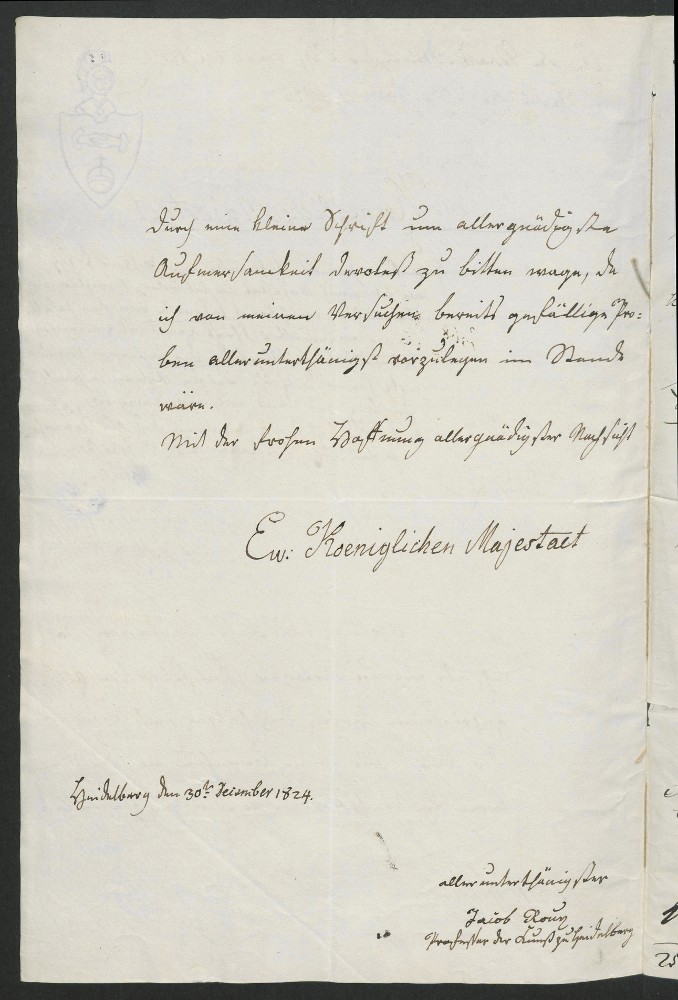 durch eine kleine Schrift um allergnädigste
Aufmersamkeit devotest zu bitten wage, da
ich von meinen Versuchen bereits gefällige Pro=
ben alleruntertthänigst vorzulegen im Stande
wäre.
Mit der frohen Hoffnung allergnädigster Nachsicht
Ew: Koeniglichen Majestaet
Heidelberg den 30t. December 1824.
alleruntertthänigster
Jacob Roux
Professor der Kunst zu Heidelberg